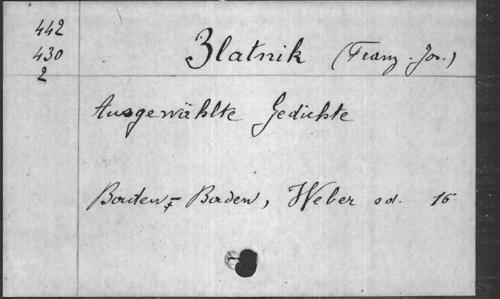 442
430
2
Zlatnik (Franz. Jos.)
Ausgewählte Gedichte
Baden-Baden, Weber od. 16